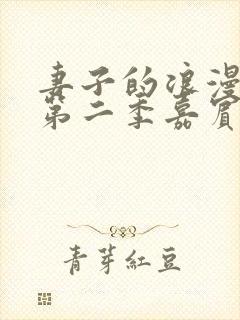 妻子的浪漫
第二季嘉宾
青芽紅豆